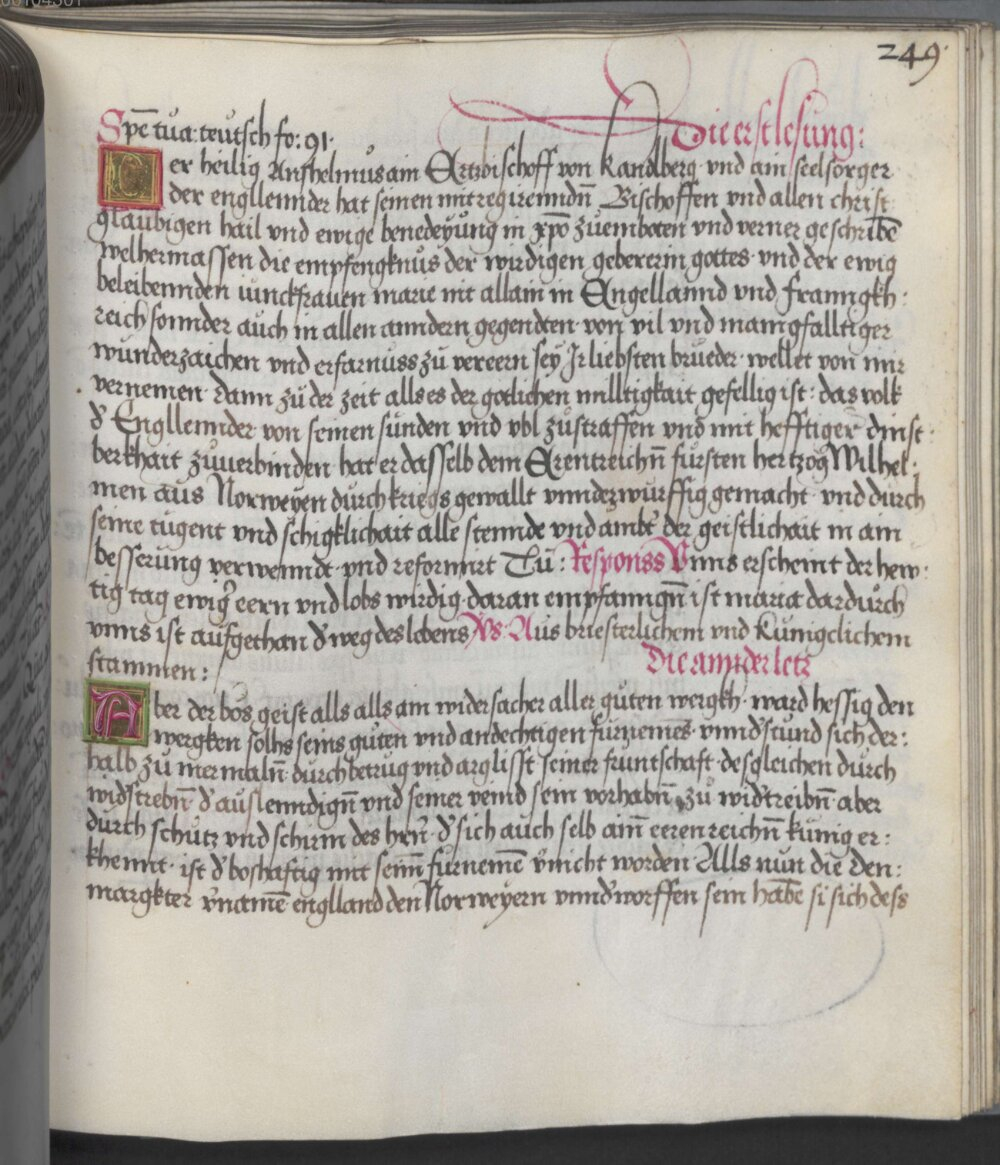 249.
Spē tua teutsch fo: 91. Die erst lesung:
Der heilig Anshelmus ain Ertzbischoff von kandlberg vnd ain seelsorger
der engllennder hat seinen mitregirenndn̄ Bischoffen vnd allen christ
glaubigen hail vnd ewige benedeyung in xp̄o zuemboten vnd verner geschribē
welhermassen die empfengknus der wirdigen gebererin gottes vnd der ewig
beleibennden iunckfrauen marie nit allain in Engellannd vnd franngkh:
reich sonnder auch in allen anndern gegendten von vil vnd manigfalltiger
wunderzaichen vnd erfarnuss zu vereern sey Ir liebsten brueder wellet von mir
vernemen dann zu der zeit alls es der gotlichen milltigkait gefellig ist: das volk
d' Engllennder von seinen sunden vnd vbl zustraffen vnd mit hefftiger dinst
berkhait zuuerbinden hat er dasselb dem Erentreichn̄ fursten hertzog Wilhel:
men aus Norweyen durch kriegs gewallt vnnderwurffig gemacht vnd durch
seine tugent vnd schigklichait alle stennde vnd ambt' der geistlichait in am
besserung verwenndt vnd reformirt Tu: Responss Vnns erscheint der hew:
tig tag ewig' eern vnd lobs wirdig daran empfanngn̄ ist maria dardurch
vnns ist aufgethan d' weg des lebens Vs Aus briesterlichem vnd kunigclichem
stammen: Die annder letz
Aber der bos geist alls alls am widersacher aller guten wergkh ward hessig den
wergken solhs seins guten vnd andechtigen furnemēs vnnd'stund sich der:
halb zu mermaln̄ durch betrug vnd arglisst seiner fruntschaft desgleichen durch
wid'strebn̄ d' auslenndign̄ vnd seiner veind sein vorhabn̄ zu wid'treibn̄ aber
durch schutz vnd schirm des hrn̄ d' sich auch selb ainn̄ eerenreichn̄ kunig er:
khennt ist d' boshaftig mit seinn̄ furnemē v'nicht worden Alls nun die Den:
margkter v'namē englland den Norweyern vnnd'worffen sein habē si sich dess